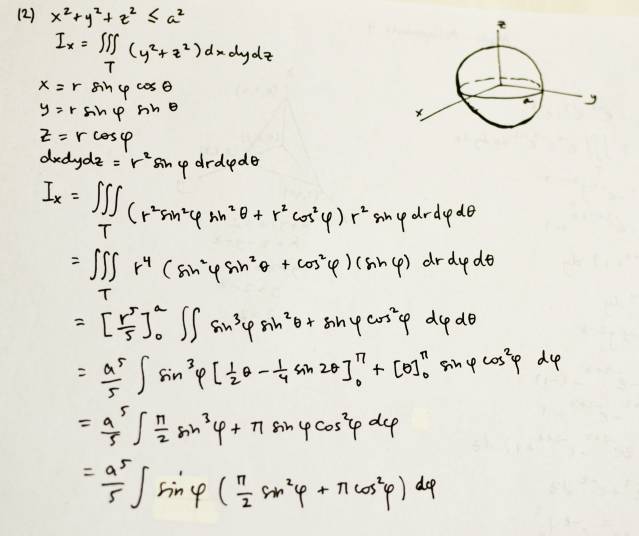 (2) x² + y² + z² ≤ a²
I_x = ∭_T (y² + z²) dx dy dz
x = r sin φ cos θ
y = r sin φ sin θ
z = r cos φ
dxdydz = r² sin φ dr dφ dθ
z
x
a
y
I_x = ∭_T (r² sin² φ sin² θ + r² cos² φ) r² sin φ dr dφ dθ
= ∭_T r⁴ (sin² φ sin² θ + cos² φ)(sin φ) dr dφ dθ
= [r⁵/5]₀ᵃ ∬ sin³ φ sin² θ + sin φ cos² φ dφ dθ
= a⁵/5 ∫ sin³ φ [1/2 θ − 1/4 sin 2θ]₀^π + [θ]₀^π sin φ cos² φ dφ
= a⁵/5 ∫ π/2 sin³ φ + π sin φ cos² φ dφ
= a⁵/5 ∫ sin φ (π/2 sin² φ + π cos² φ) dφ